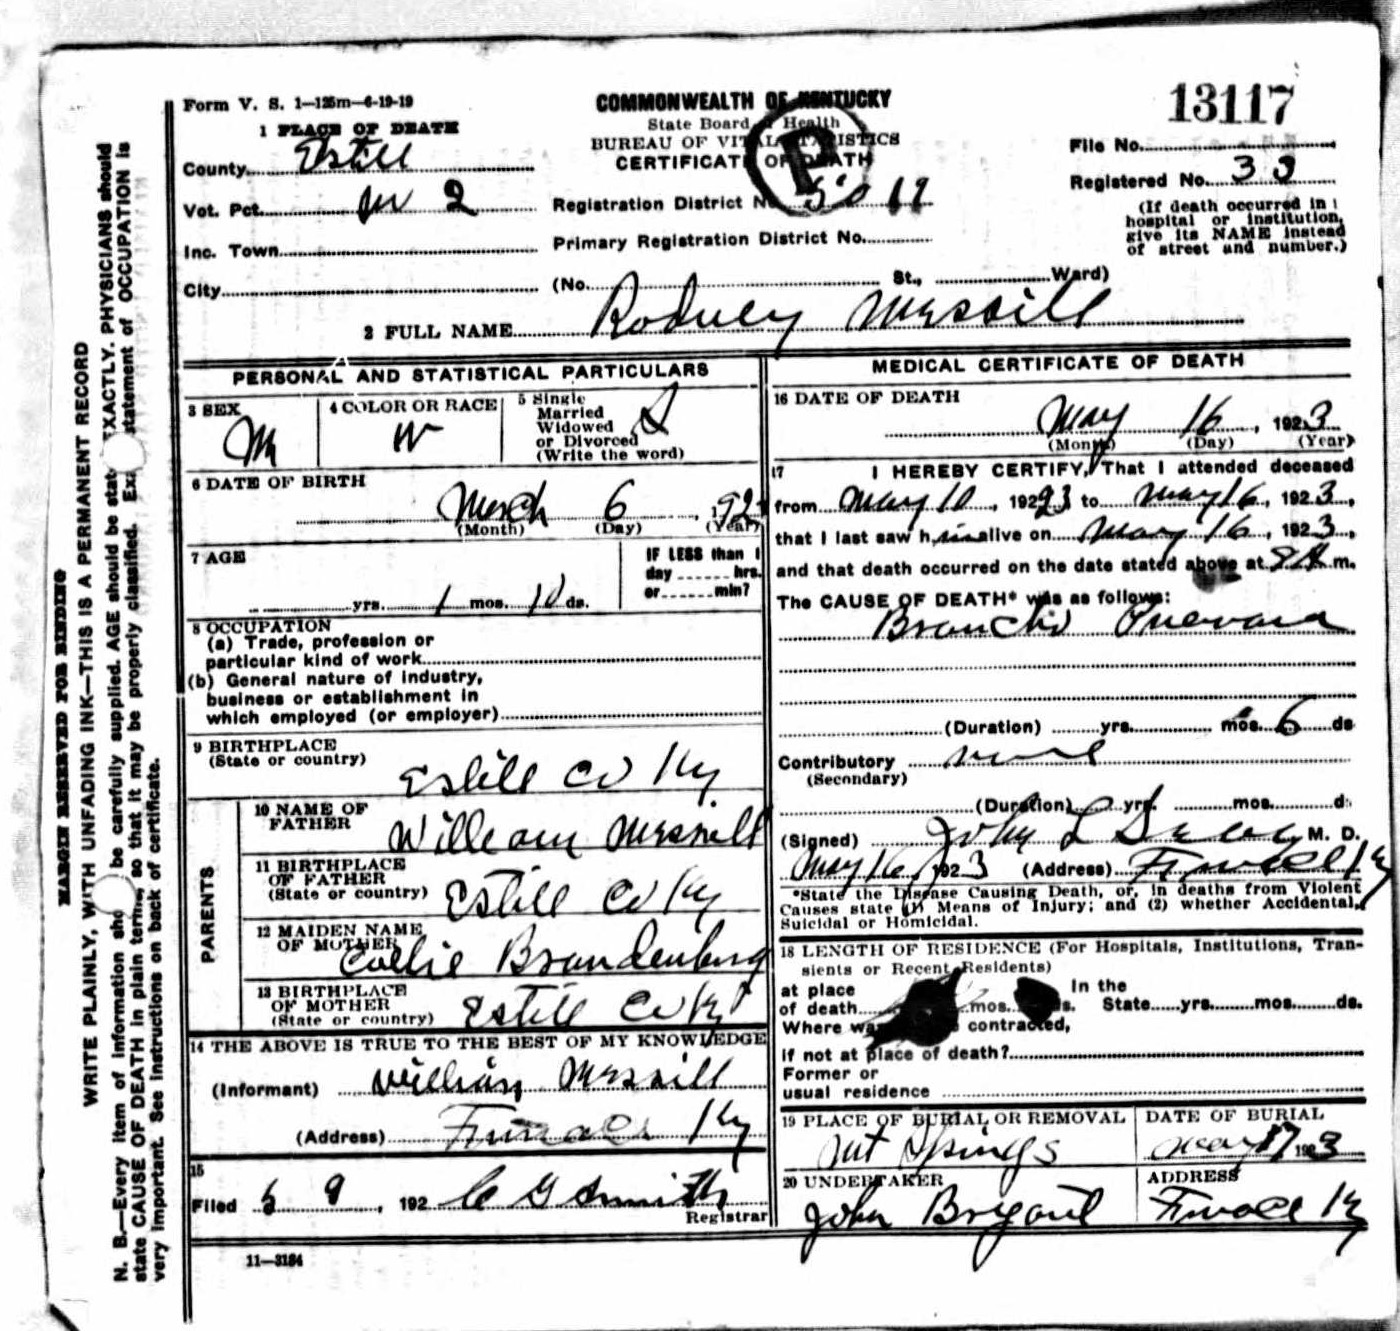 Form V. S. 1—125m—6-19-19
COMMONWEALTH OF KENTUCKY
State Board of Health
BUREAU OF VITAL STATISTICS
CERTIFICATE OF DEATH
13117
File No.
Registered No. 33
(If death occurred in
hospital or institution,
give its NAME instead
of street and number.)
1 PLACE OF DEATH
County Estill
Vot. Pct. 2
Inc. Town
City
Registration District No. 5017
Primary Registration District No.
(No. St., Ward)
2 FULL NAME Rodney
PERSONAL AND STATISTICAL PARTICULARS
3 SEX
M
4 COLOR OR RACE
W
5 Single
Married
Widowed
or Divorced
(Write the word)
S
6 DATE OF BIRTH
March 6, 192
(Month) (Day) (Year)
7 AGE
yrs. 1 mos. 10 ds.
IF LESS than 1
day hrs.
or min?
8 OCCUPATION
(a) Trade, profession or
particular kind of work
(b) General nature of industry,
business or establishment in
which employed (or employer)
9 BIRTHPLACE
(State or country)
Estill Co Ky
PARENTS
10 NAME OF
FATHER
William
11 BIRTHPLACE
OF FATHER
(State or country)
Estill Co Ky
12 MAIDEN NAME
OF MOTHER
Brandenburg
13 BIRTHPLACE
OF MOTHER
(State or country)
Estill Co Ky
14 THE ABOVE IS TRUE TO THE BEST OF MY KNOWLEDGE
(Informant) William
(Address) Furnace Ky
15
Filed 9, 192 C G Smith
Registrar
11—3184
MEDICAL CERTIFICATE OF DEATH
16 DATE OF DEATH
May 16, 1923
(Month) (Day) (Year)
17 I HEREBY CERTIFY, That I attended deceased
from May 10, 1923 to May 16, 1923,
that I last saw him alive on May 16, 1923,
and that death occurred on the date stated above at m.
The CAUSE OF DEATH* was as follows:
Broncho
(Duration) yrs. mos. 6 ds
Contributory none
(Secondary)
(Duration) yrs. mos. ds
(Signed) John L M. D.
May 16, 1923 (Address) Furnace Ky
*State the Disease Causing Death, or, in deaths from Violent
Causes state (1) Means of Injury; and (2) whether Accidental,
Suicidal or Homicidal.
18 LENGTH OF RESIDENCE (For Hospitals, Institutions, Tran-
sients or Recent Residents)
at place In the
of death mos. ds. State yrs. mos. ds.
Where was contracted,
if not at place of death?
Former or
usual residence
19 PLACE OF BURIAL OR REMOVAL
Springs
DATE OF BURIAL
May 17 1923
20 UNDERTAKER
John Bryant
ADDRESS
Furnace Ky
MARGIN RESERVED FOR BINDING
WRITE PLAINLY, WITH UNFADING INK—THIS IS A PERMANENT RECORD
N. B.—Every item of information should be carefully supplied. AGE should be stated EXACTLY. PHYSICIANS should
state CAUSE OF DEATH in plain terms, so that it may be properly classified. Exact statement of OCCUPATION is
very important. See instructions on back of certificate.